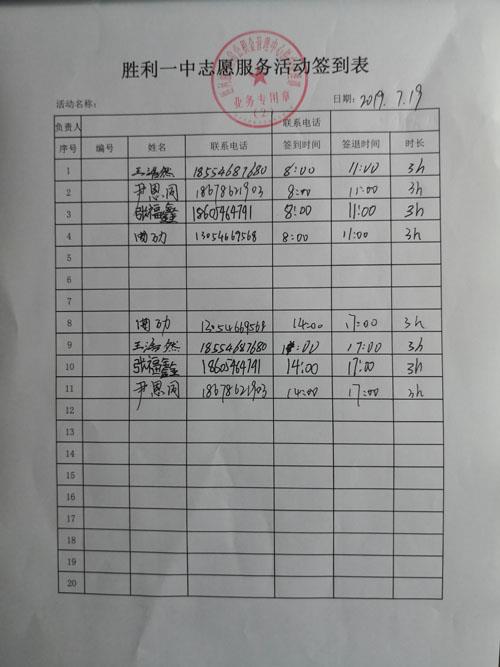 胜利一中志愿服务活动签到表
业务专用章
(2)
活动名称: 日期: 2019.7.19
负责人 联系电话
序号 编号 姓名 联系电话 签到时间 签退时间 时长
1 王浩然 18554687680 8:00 11:00 3h
2 尹思同 18678621903 8:00 11:00 3h
3 张福鑫 18605464741 8:00 11:00 3h
4 曲劲 13054669568 8:00 11:00 3h
5
6
7
8 曲劲 13054669568 14:00 17:00 3h
9 王浩然 18554687680 14:00 17:00 3h
10 张福鑫 18605464741 14:00 17:00 3h
11 尹思同 18678621903 14:00 17:00 3h
12
13
14
15
16
17
18
19
20